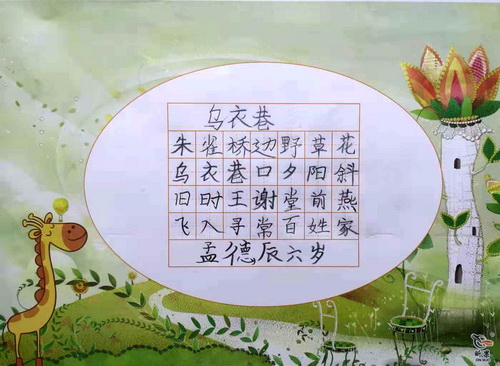 乌衣巷
朱雀桥边野草花
乌衣巷口夕阳斜
旧时王谢堂前燕
飞入寻常百姓家
孟德辰六岁